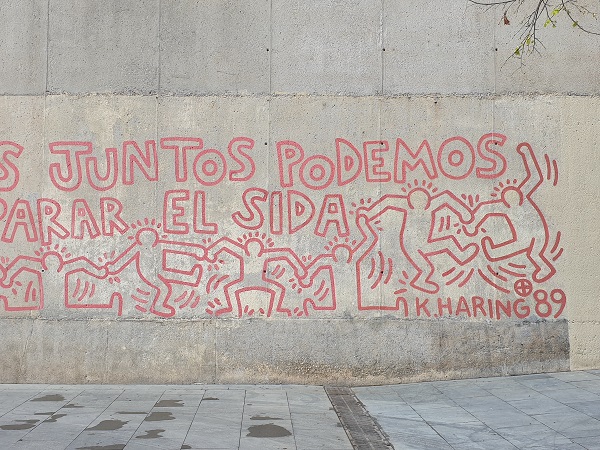 S JUNTOS PODEMOS
PARAR EL SIDA
K. HARING ⊕ 89